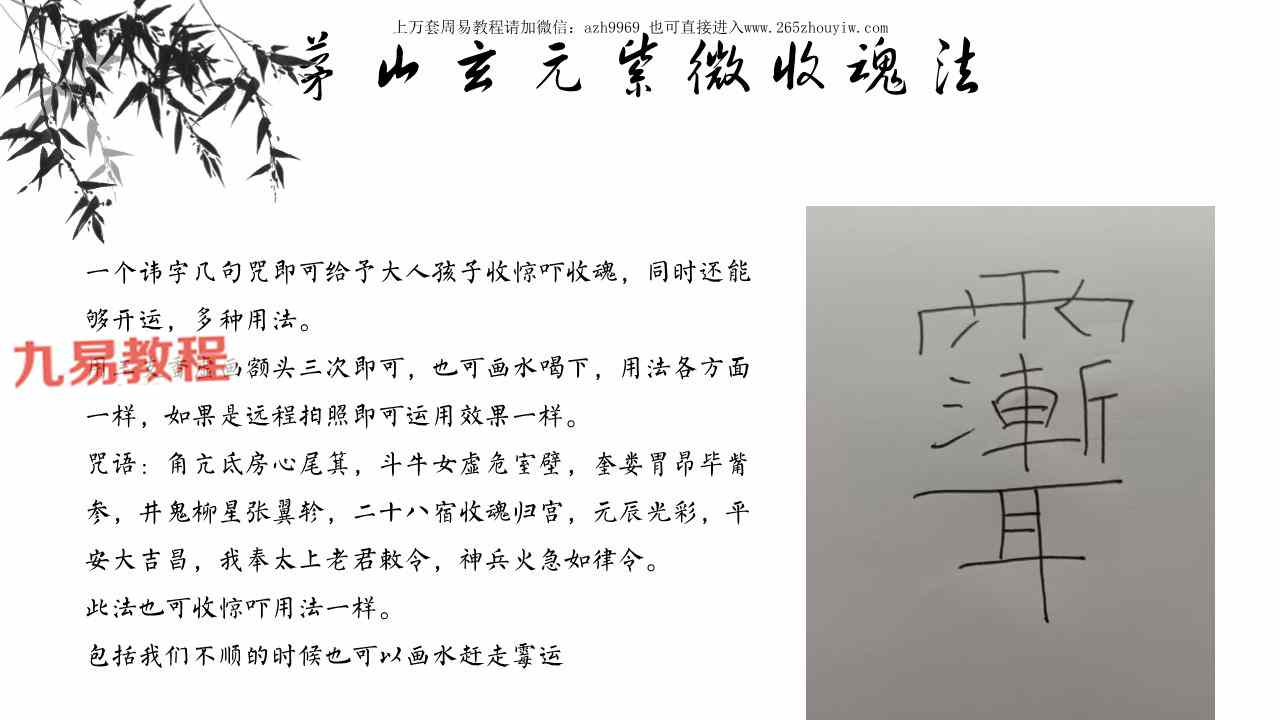 上万套周易教程请加微信：azh9969 也可直接进入www.265zhouyiw.com
茅山玄元紫微收魂法
一个讳字几句咒即可给予大人孩子收惊吓收魂，同时还能
够开运，多种用法。
九易教程
画额头三次即可，也可画水喝下，用法各方面
一样，如果是远程拍照即可运用效果一样。
咒语：角亢氐房心尾箕，斗牛女虚危室壁，奎娄胃昂毕觜
参，井鬼柳星张翼轸，二十八宿收魂归宫，元辰光彩，平
安大吉昌，我奉太上老君敕令，神兵火急如律令。
此法也可收惊吓用法一样。
包括我们不顺的时候也可以画水赶走霉运